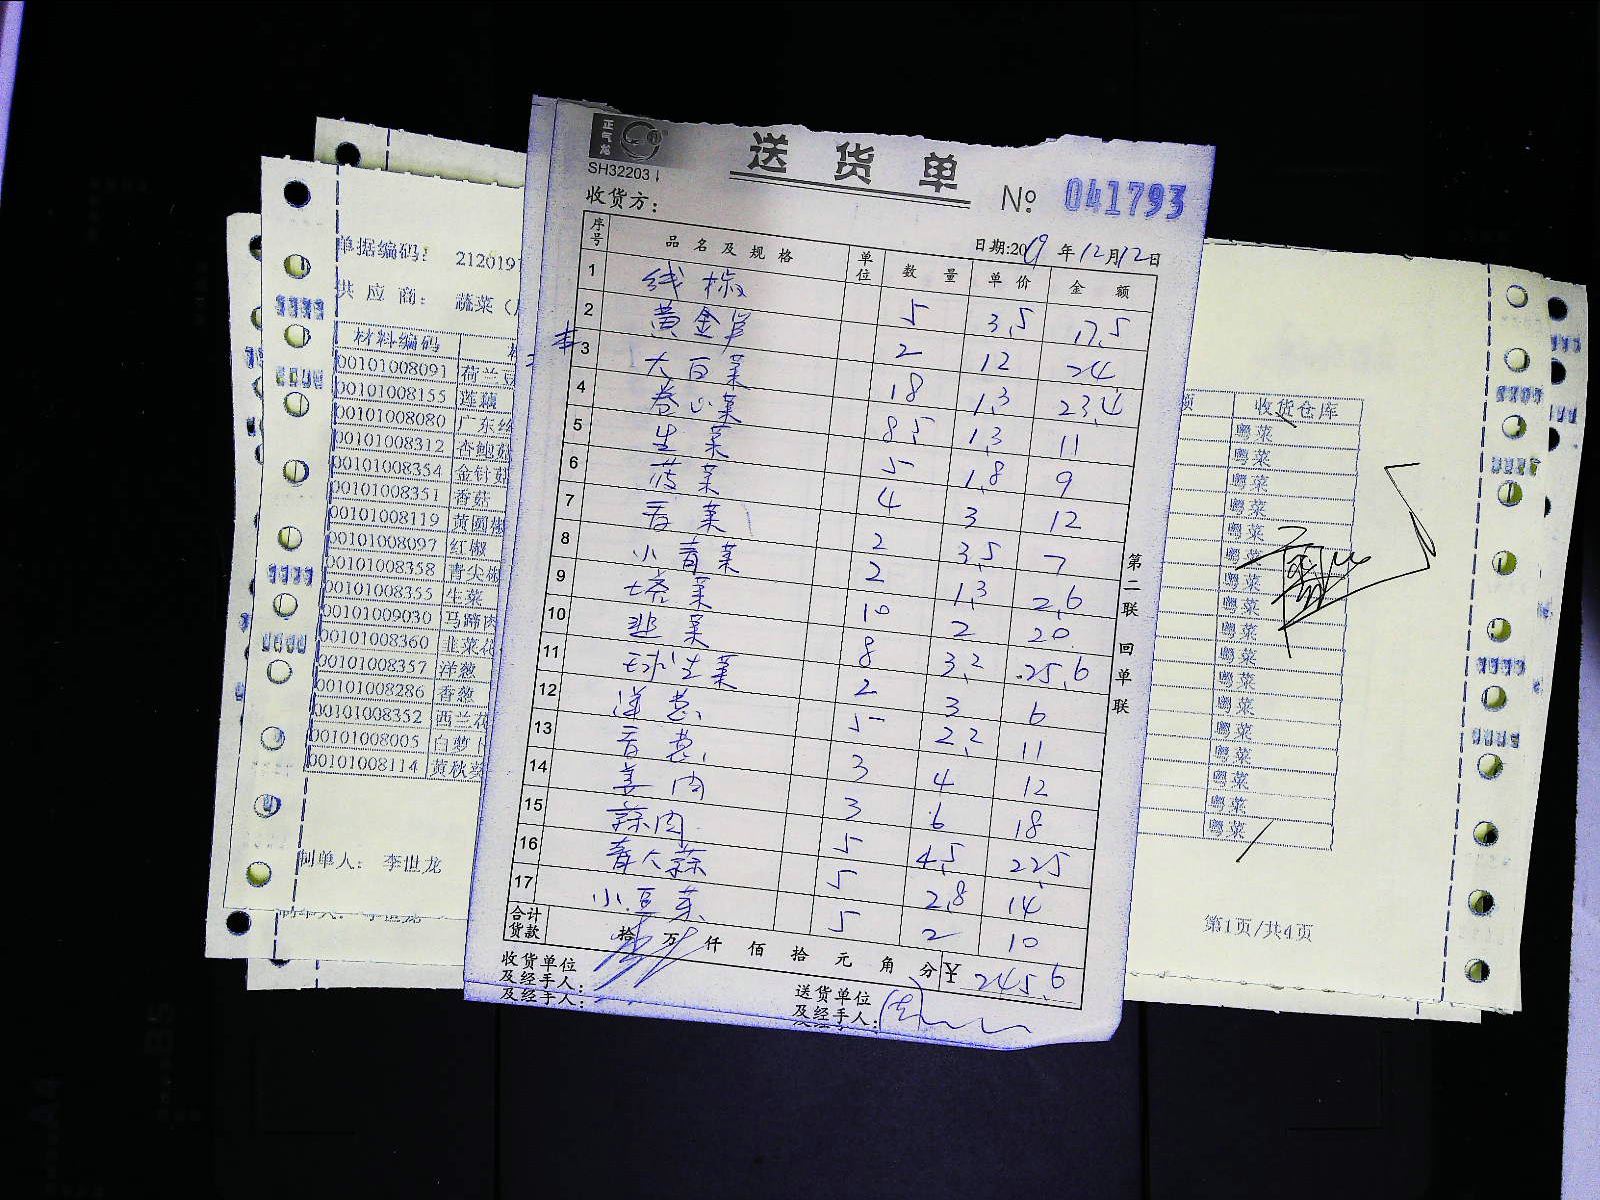 正气龙
SH32203
送货单
№ 041793
收货方：
日期:2019年12月12日
序号 品名及规格 单位 数量 单价 金额
1 线椒 5 3.5 17.5
2 黄金芽 2 12 24
3 大白菜 18 1.3 23.4
4 卷心菜 8.5 1.3 11
5 生菜 5 1.8 9
6 菠菜 4 3 12
7 香菜 2 3.5 7
8 小青菜 2 1.3 2.6
9 塔菜 10 2 20
10 韭菜 8 3.2 25.6
11 球生菜 2 3 6
12 洋葱 5 2.2 11
13 香葱 3 4 12
14 姜肉 3 6 18
15 蒜肉 5 4.5 22.5
16 青大蒜 5 2.8 14
17 小豆芽 5 2 10
合计货款 拾 万 仟 佰 拾 元 角 分 ¥ 245.6
收货单位及经手人：
及经手人：
送货单位及经手人：
第二联 回单联
单据编码： 212019
供应商： 蔬菜（
材料编码
00101008091 荷兰豆
00101008155 莲藕
00101008080 广东丝
00101008312 杏鲍菇
00101008354 金针菇
00101008351 香菇
00101008119 黄圆椒
00101008097 红椒
00101008358 青尖椒
00101008355 生菜
00101009030 马蹄肉
00101008360 韭菜花
00101008357 洋葱
00101008286 香葱
00101008352 西兰花
00101008005 白萝卜
00101008114 黄秋葵
制单人： 李世龙
制单人： 李世龙
额 收货仓库
粤菜
粤菜
粤菜
粤菜
粤菜
粤菜
粤菜
粤菜
粤菜
粤菜
粤菜
粤菜
粤菜
粤菜
粤菜
粤菜
粤菜
第1页/共4页